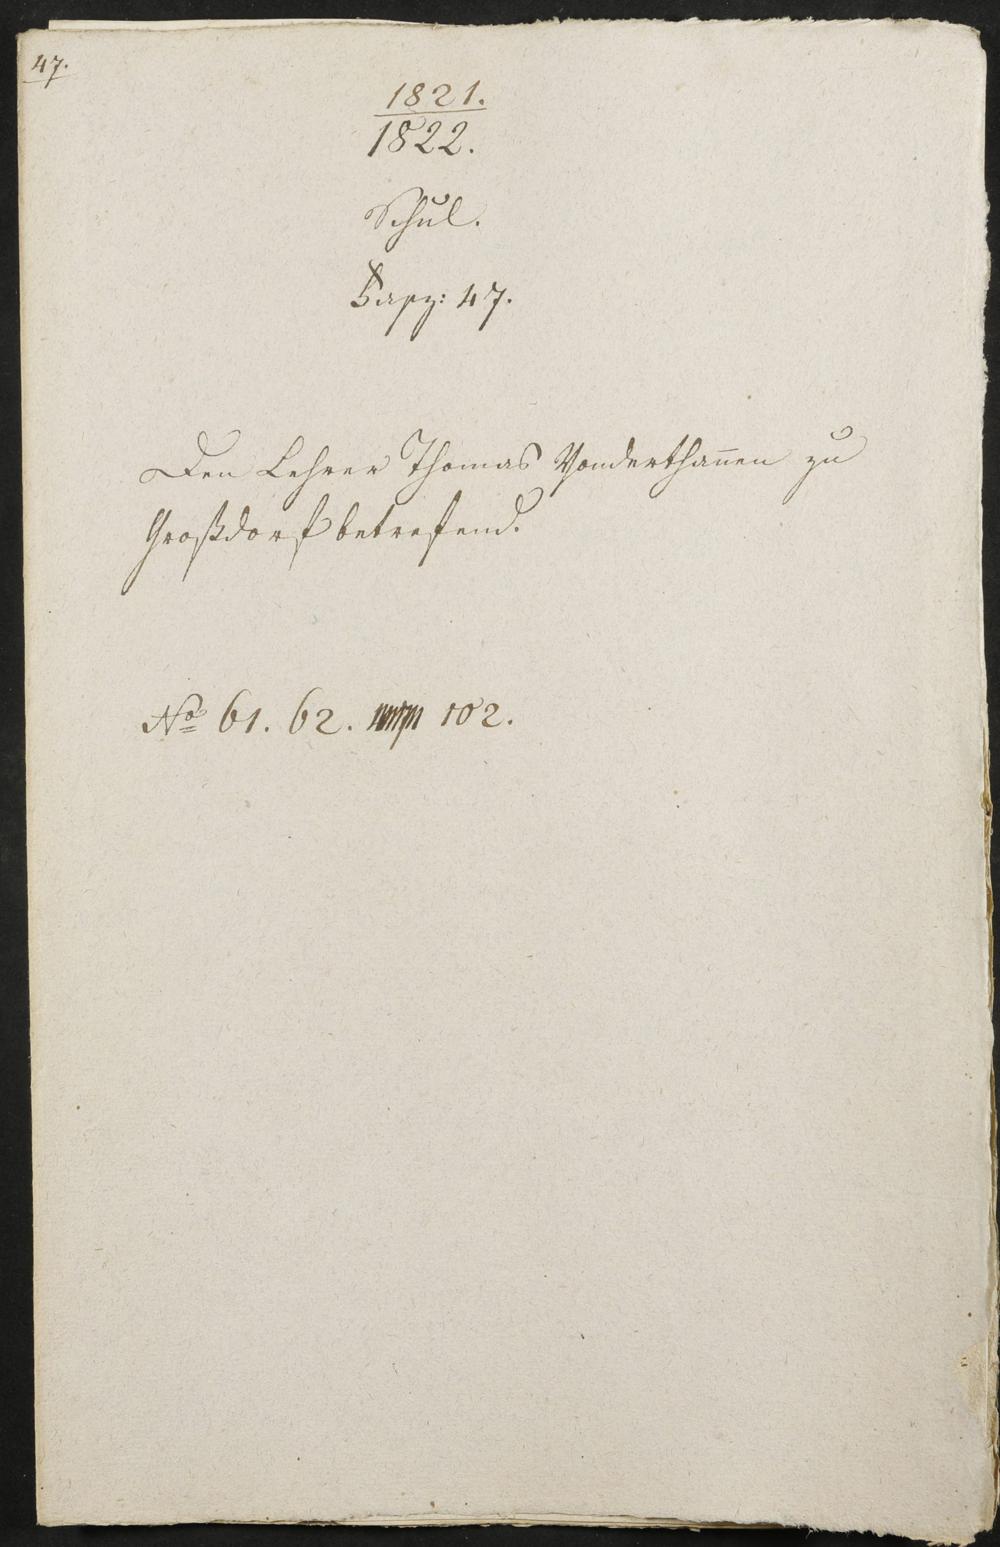 47.
1821.
1822.
Schul.
Fasz: 47.
Den Lehrer Thomas Vonderthan̄en zu
Großdorf betrefend.
No 61. 62. 102.